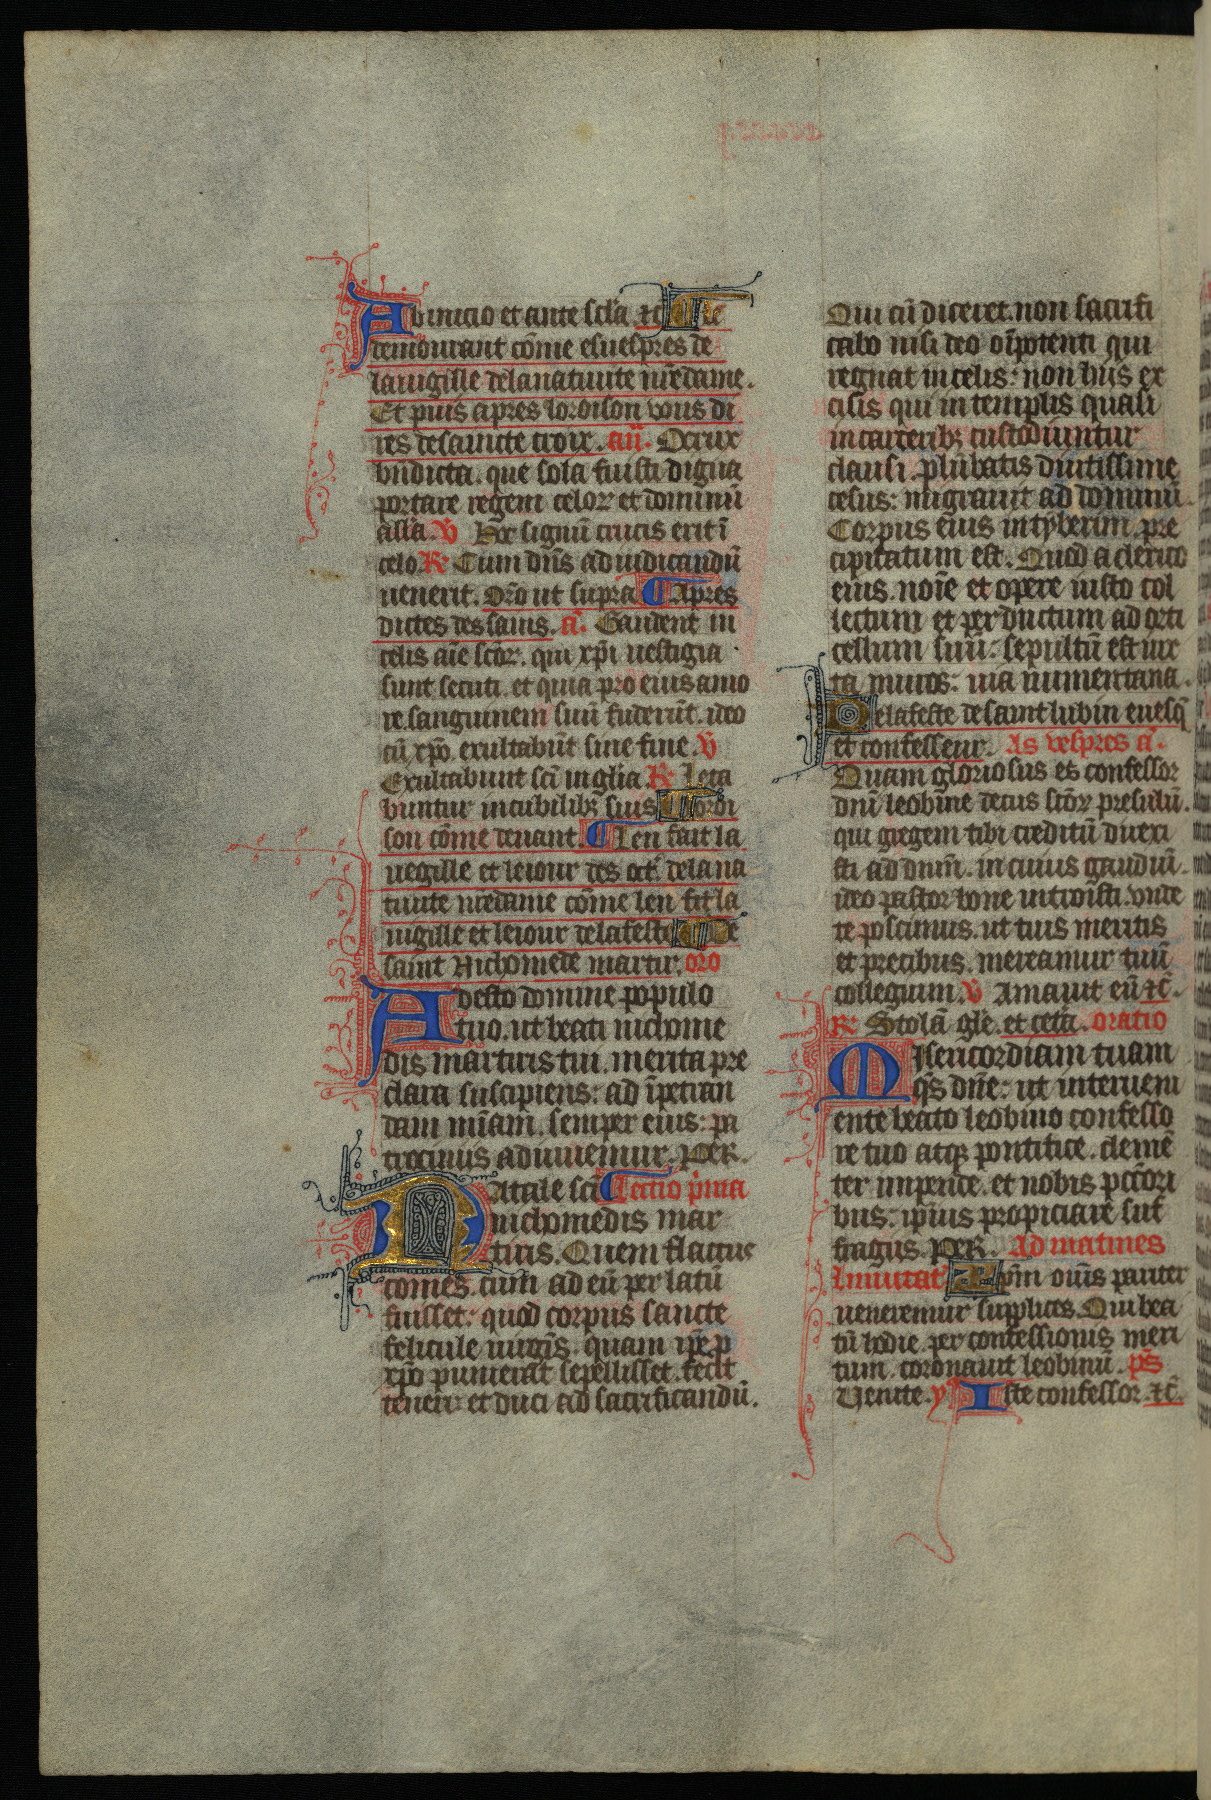 Ab inicio et ante scl̃a. ⁊c̃ Le
demourant cõme es uespres de
la uigille de la natiuite nr̃e dame.
Et puis apres loroison vous di
res de saincte croix. añ. O crux
bn̄dicta. que sola fuisti digna
portare regem celoꝝ et dominũ
all̃a. ℣ Hoc signũ crucis erit ĩ
celo. ℟ Cum dñs ad iudicandũ
uenerit. Or̃o ut supra ¶ Apres
dictes des sains. a᷃. Gaudent in
celis aĩe sc̃oꝝ. qui xp̃i uestigia
sunt secuti. et quia pro eius amo
re. sanguinem suũ fuderũt. ideo
cũ xp̃o. exultabũt sine fine. ℣
Exultabunt sc̃i in gl̃ia. ℟ Leta
buntur in cubilibꝫ suis Loroi
son cõme deuant. ¶ Len fait la
uegille et le iour des oct̃. de la na
tiuite nr̃e dame cõme len fit la
uigille et le iour de la feste De
saint Nichomede martir. or̃o
Adesto domine populo
tuo. ut beati nichome
dis martiris tui. merita pre
clara suscipiens: ad ĩpetran
dam mĩam. semper eius: pa
trociniis adiuuemur. PER.
Natale sc̃i Lectio p̃ma
nichomedis mar
tiris. Quem flaccus
comes. cum ad eũ per latũ
fuisset: quod corpus sancte
felicule uirgĩs. quam ip̃e p̱
xp̃o punierat sepelisset. fecit
teneri et duci ad sacrificandũ.
Qui cũ diceret. non sacrifi
cabo nisi deo oĩpotenti qui
regnat in celis: non hiis ex
cisis qui in templis quasi
in carceribꝫ custodiuntur
clausi. plũbatis diutissime
cesus: migrauit ad dominũ.
Corpus eius in tyberim. pre
cipitatum est. Quod a clerico
eius. noĩe et opere iusto col
lectum et per ductum ad orti
cellum suũ: sepultũ est iux
ta muros: uia numentana.
De la feste de saint lubin euesq̃
et confesseur. As vespres a᷃.
Quam gloriosus es confessor
dnĩ leobine decus sc̃oꝝ presulũ.
qui gregem tibi creditũ direxi
sti ad dnm̃. in cuius gaudiũ.
ideo pastor bone introĩsti. vnde
te poscimus. ut tuis meritis
et precibus. mereamur tuũ
collegium. ℣ Amauit eũ ⁊c̃.
℟ Stolã gl̃e. et cet̃a. oratio
Misericordiam tuam
q̃s dñe: ut interueni
ente beato leobino confesso
re tuo atqꝫ pontifice. clemẽ
ter impende. et nobis pcc̃ori
bus: ip̃ius propiciare suf
fragiis. PER. Ad matines
Inuitat̃ Xp̃m om̃s pariter
ueneremur supplices. Qui bea
tũ hodie. per confessionis meri
tum. coronauit leobinũ. p̃s
Venite. y᷃ Iste confessor. ⁊c̃.